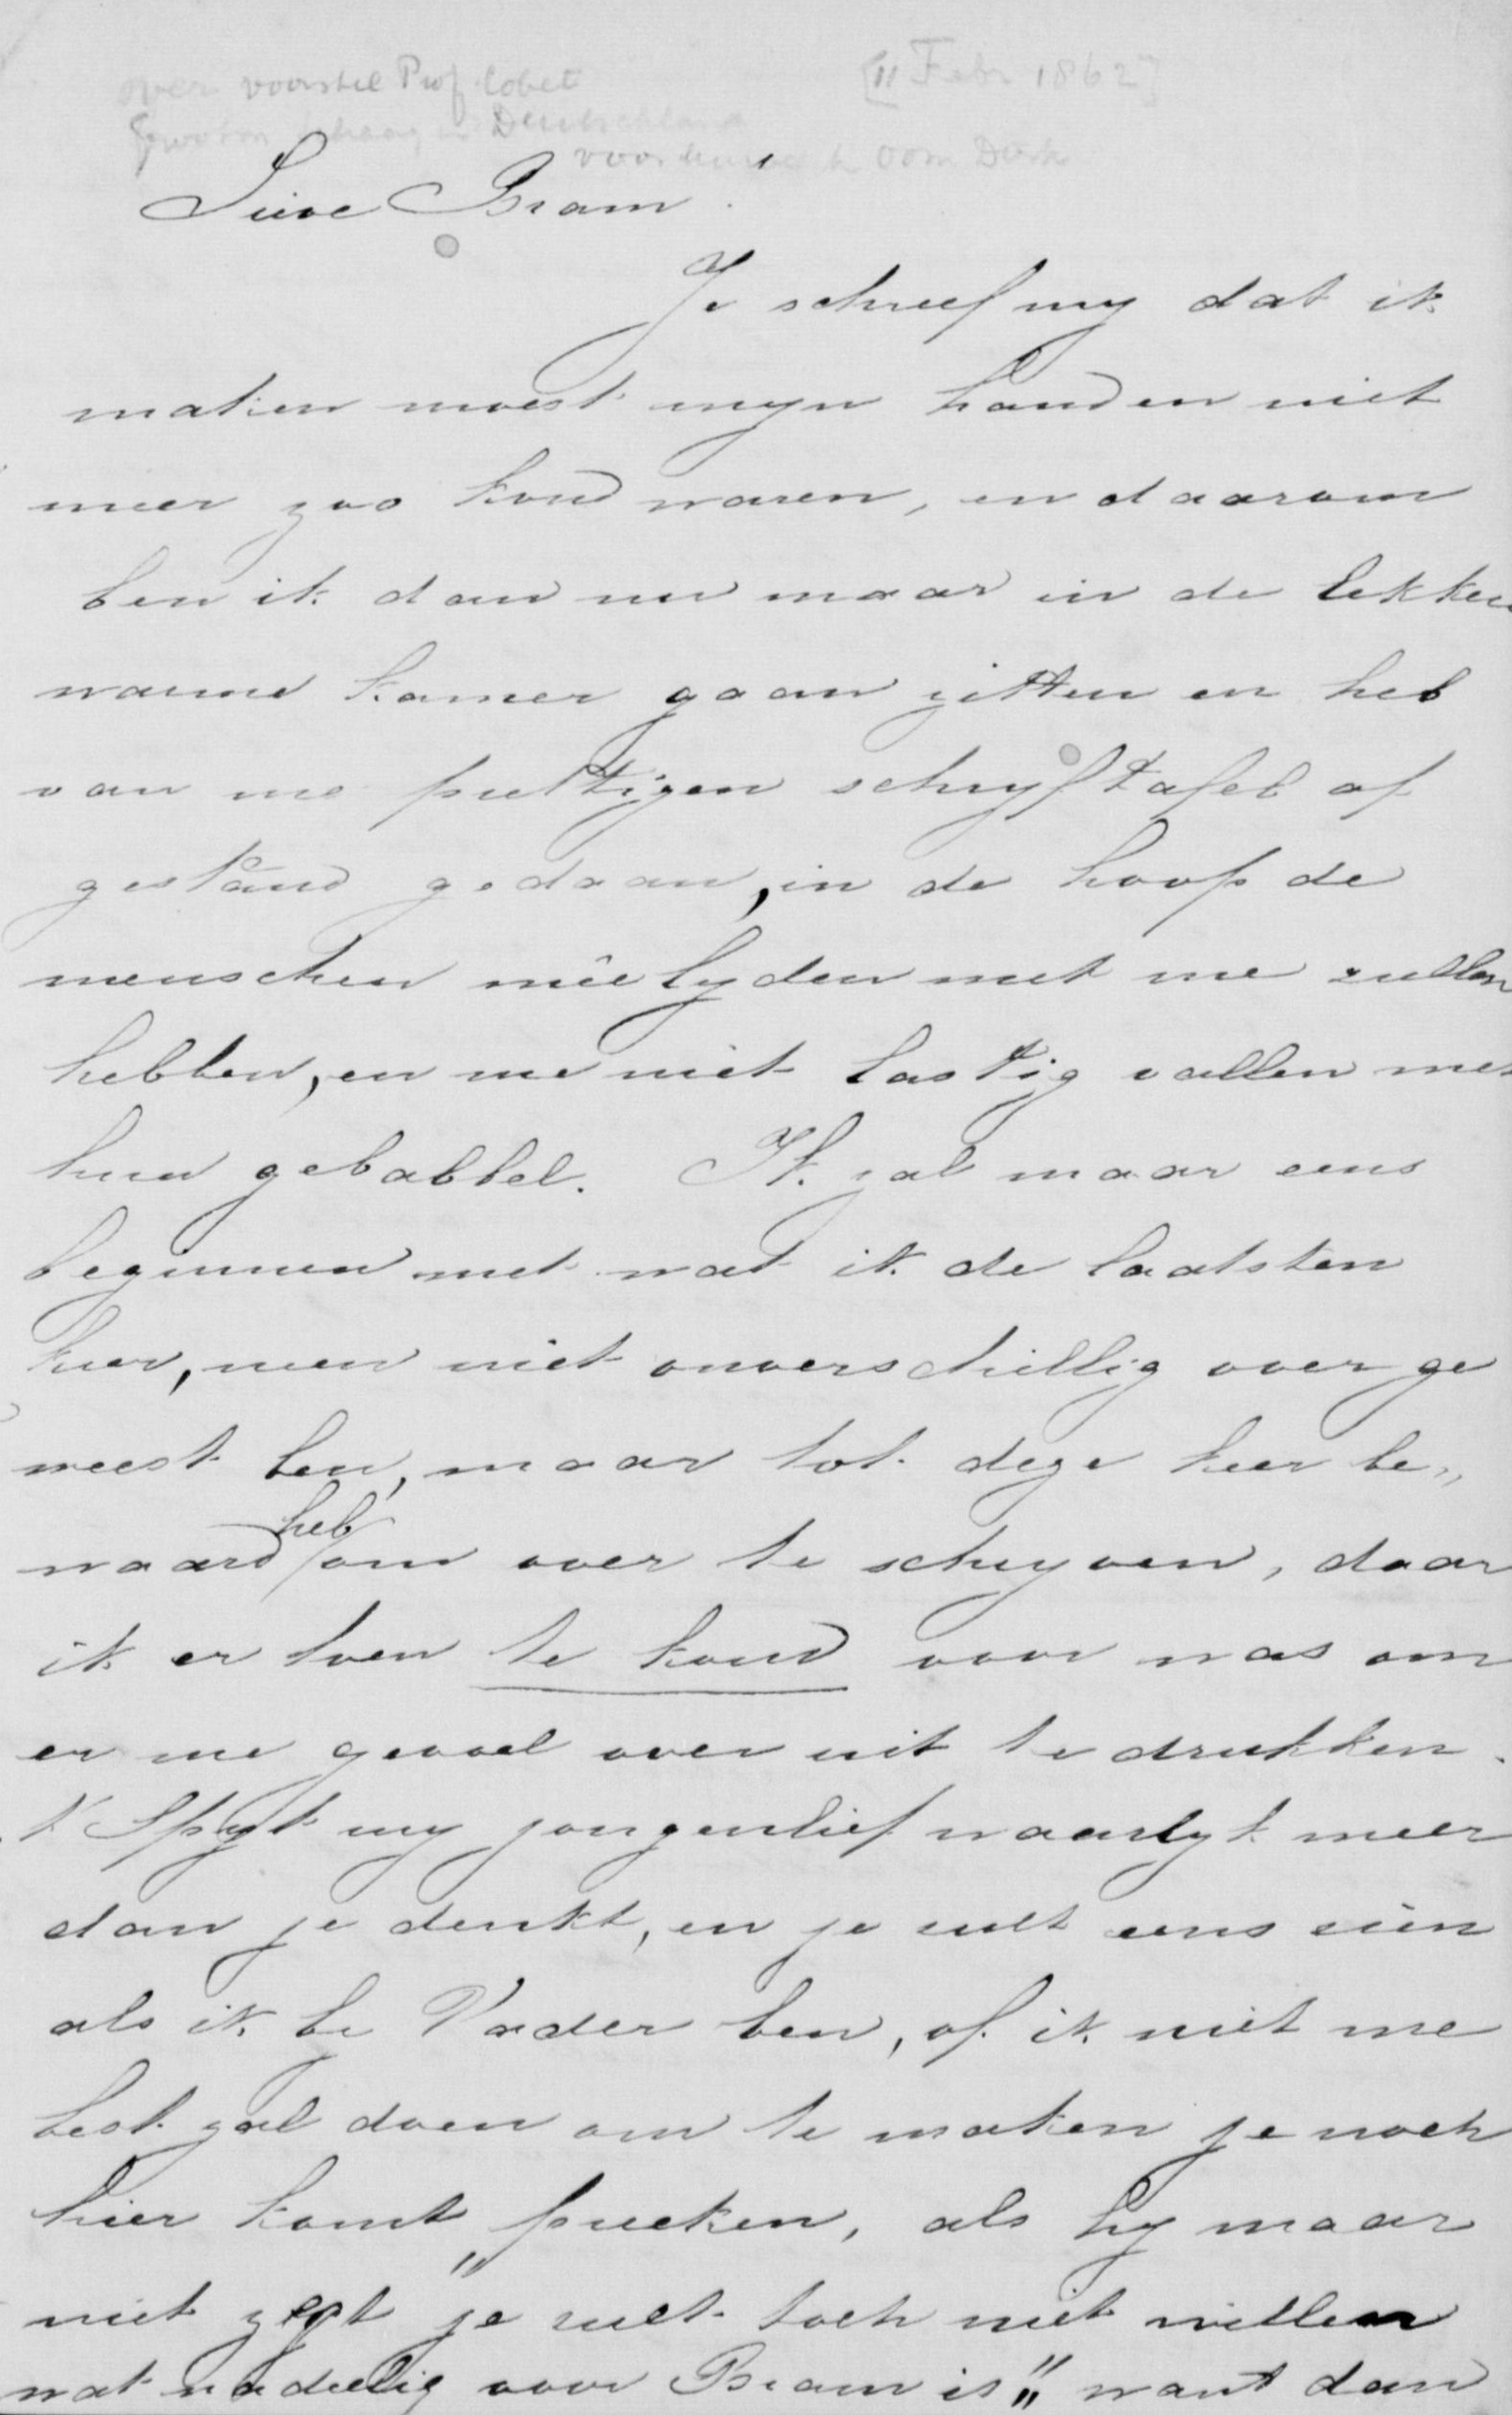 over voorstel Prof. Cobet [11 Febr 1862]
Deutschland
voorkeur Oom Dirk
Lieve Bram!
Je schreef my dat ik
maken moest myn handen niet
meer zoo koud waren, en daarom
ben ik dan nu maar in de lekker
warme kamer gaan zitten en heb
van me prettigen schryftafel af
gestand gedaan, in de hoop de
menschen meêlyden met me zullen
hebben, en me niet lastig vallen met
hun gebabbel. Ik zal maar eens
beginnen met wat ik de laatsten
keer, neen niet onverschillig over ge
weest ben, maar tot deze keer be„
waard heb om over te schryven, daar
ik er toen te koud voor was om
er me gevoel over uit te drukken.
't Spyt my jongenlief waarlyk meer
dan je denkt, en je zult eens zien
als ik by Vader ben, of ik niet me
best zal doen om te maken je noch
hier komt preeken, als hy maar
niet zegt „je zult toch niet willen
wat nadeelig voor Bram is" want dan